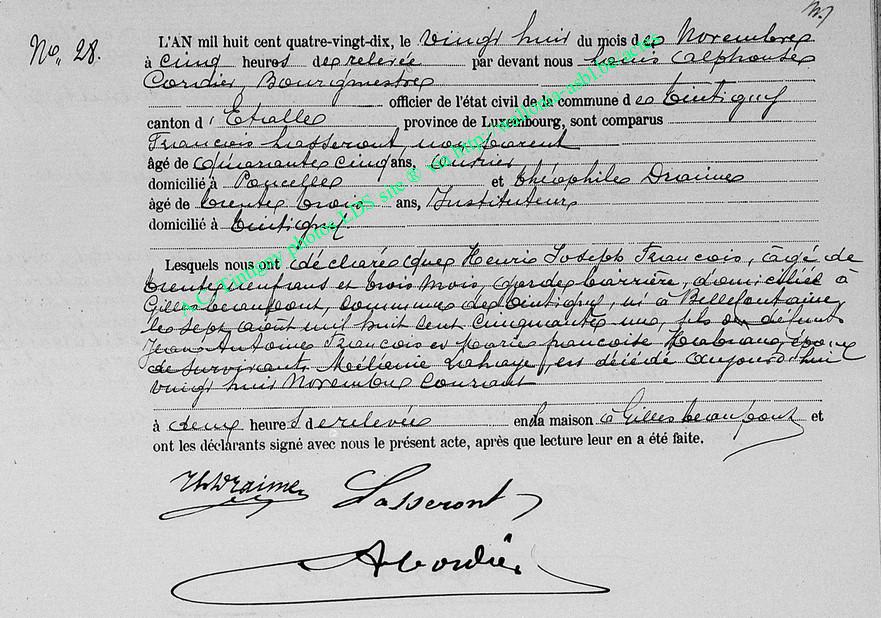 No. 28.
L'AN mil huit cent quatre-vingt-dix, le vingt huit du mois de Novembre
à cinq heures de relevée par devant nous Louis Alphonse
Cordier, Bourgmestre
officier de l'état civil de la commune de Tintigny
canton d'Etalle province de Luxembourg, sont comparus
François Lasseront, non parent
âgé de quarante cinq ans, ouvrier
domicilié à Poncelle et Théophile Draime
âgé de trente trois ans, Instituteur
domicilié à Tintigny.
Lesquels nous ont déclaré que Henri Joseph François, âgé de
trente neuf ans et trois mois, garde barrière, domicilié à
Gilles beaufpont, commune de Tintigny, né à Bellefontaine,
le sept août mil huit cent cinquante une, fils de défunts
Jean Antoine François et Marie françoise époux
de survivante Mélanie Lahaye, est décédé aujourd'hui
vingt huit Novembre courant
à deux heures de relevée en la maison à Gilles beaufpont et
ont les déclarants signé avec nous le présent acte, après que lecture leur en a été faite.
Th Draime Lasseront
A Cordier
A.C. Tintigny photos LDS site ® via http://wallonia-asbl.be/actes